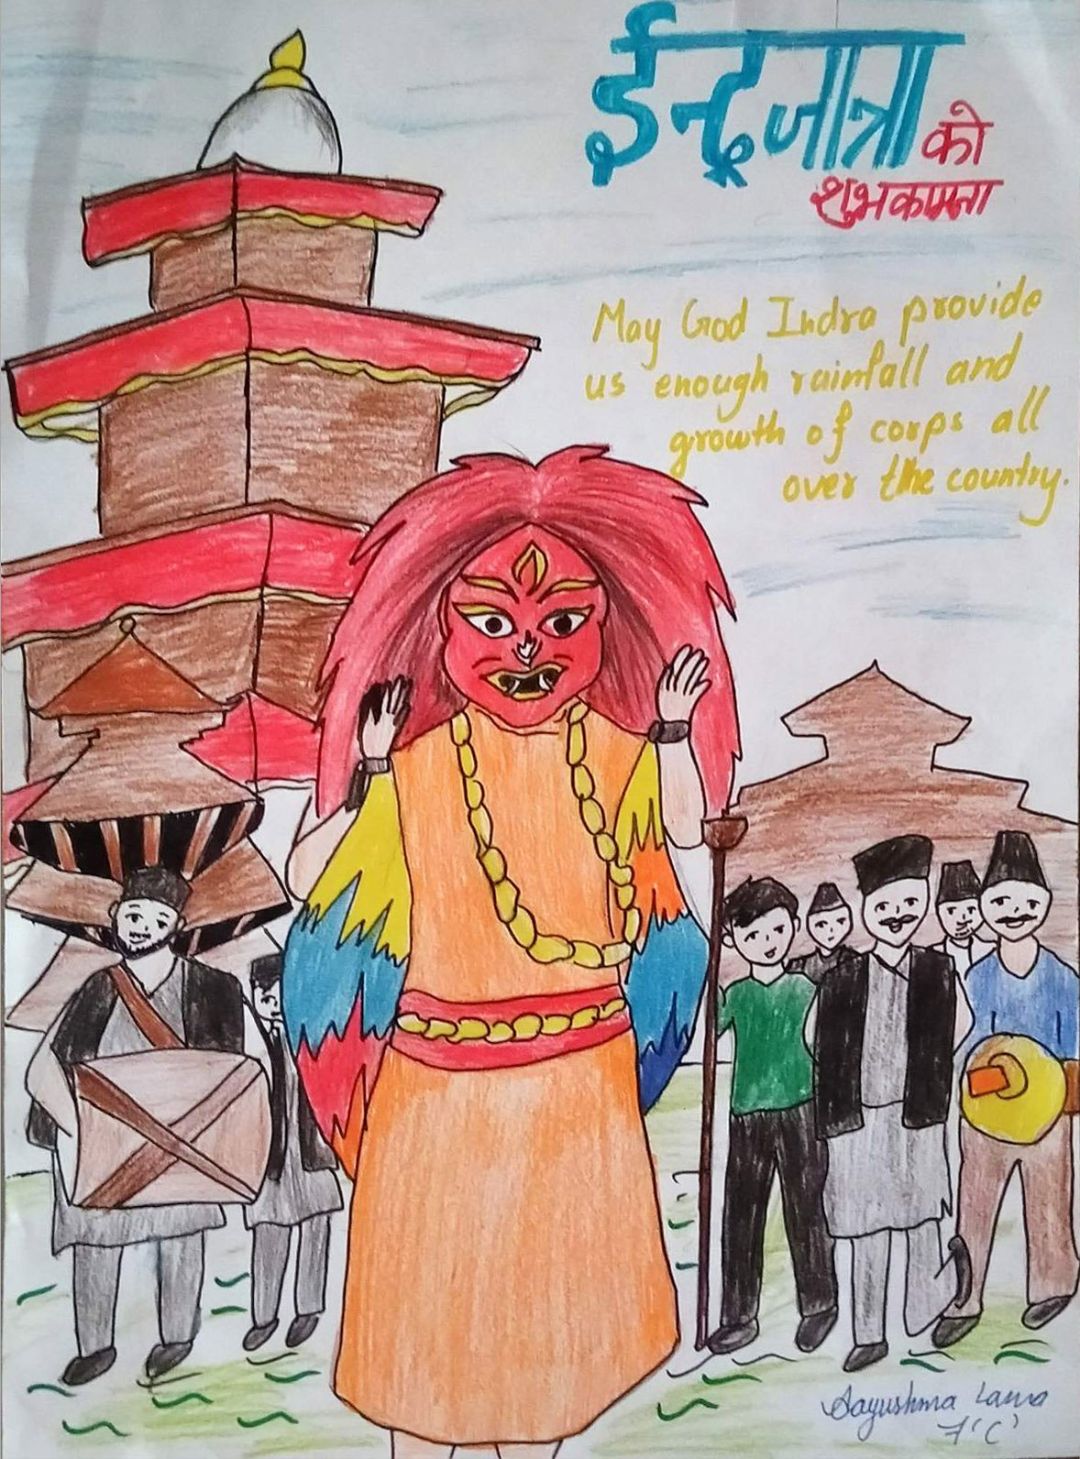 ईन्द्रजात्रा को
शुभकामना
May God Indra provide
us enough rainfall and
growth of corps all
over the country.
Aayushma Lama
7'C'